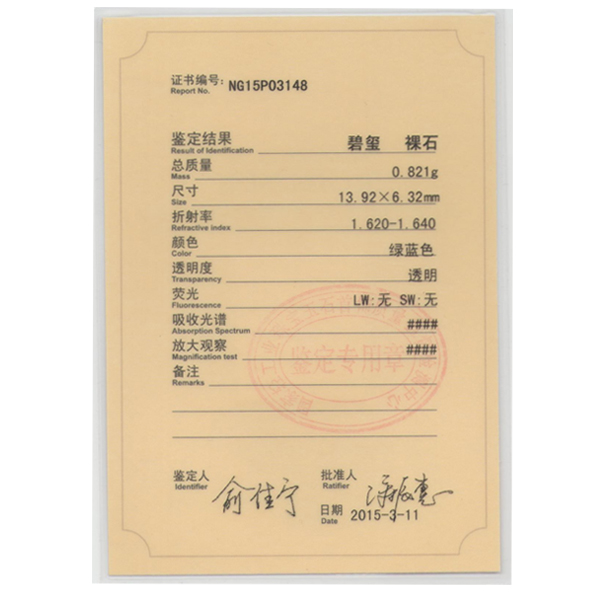 证书编号: NG15P03148
Report No.
鉴定结果 碧玺 裸石
Result of Identification
总质量 0.821g
Mass
尺寸 13.92×6.32mm
Size
折射率 1.620-1.640
Refractive index
颜色 绿蓝色
Color
透明度 透明
Transparency
荧光 LW:无 SW:无
Fluorescence
吸收光谱 ####
Absorption Spectrum
放大观察 ####
Magnification test
鉴定专用章
备注
Remarks
鉴定人 俞佳宁
Identifier
批准人
Ratifier
日期 2015-3-11
Date